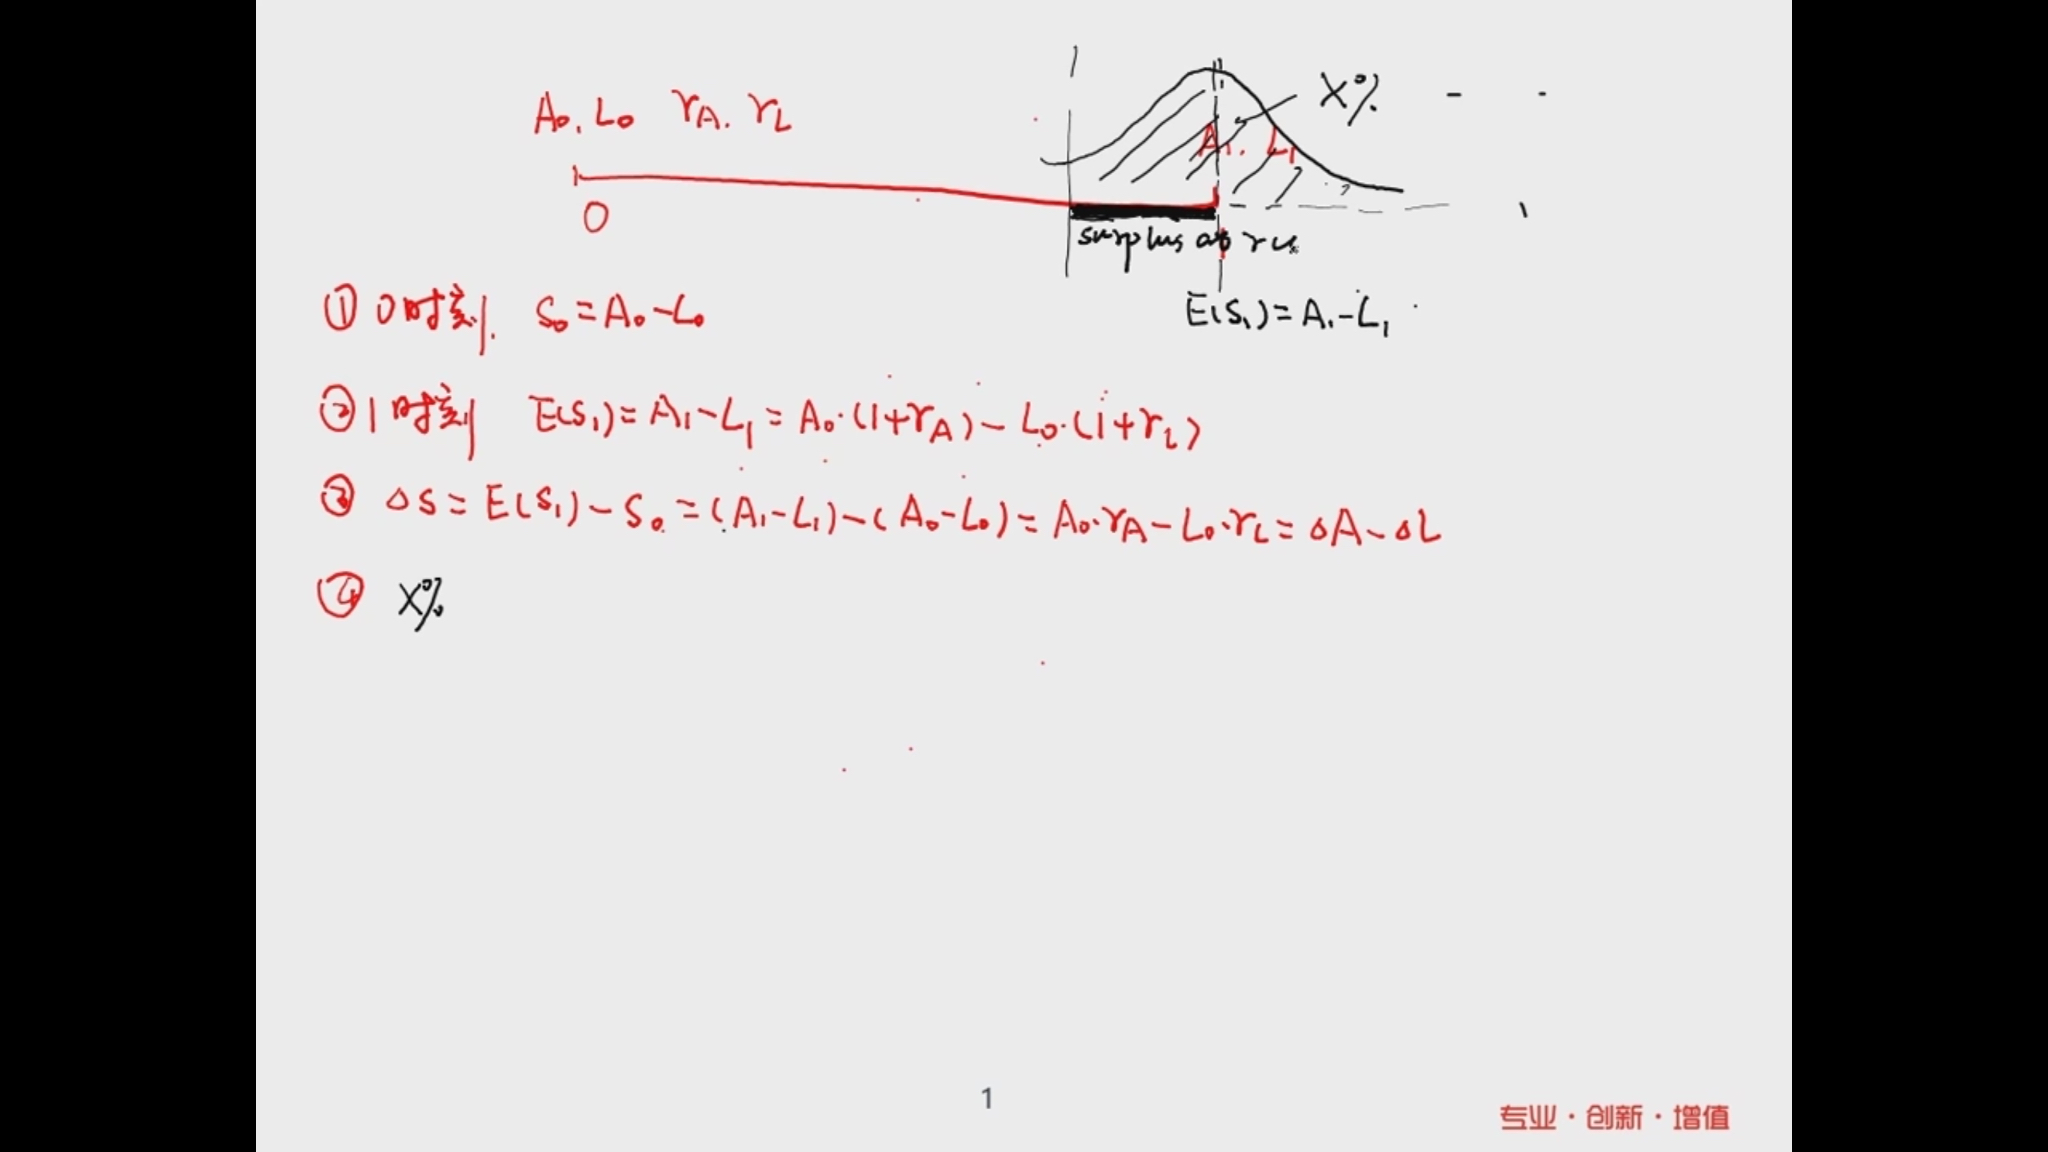 A₀. L₀ r_A. r_L
X%
A₁. L₁
0
surplus at
E(S₁)=A₁-L₁
① 0时刻. S₀=A₀-L₀
② 1时刻 E(S₁)=A₁-L₁=A₀·(1+r_A)-L₀·(1+r_L)
③ ΔS=E(S₁)-S₀=(A₁-L₁)-(A₀-L₀)=A₀·r_A-L₀·r_L=ΔA-ΔL
④ X%
1
专业·创新·增值